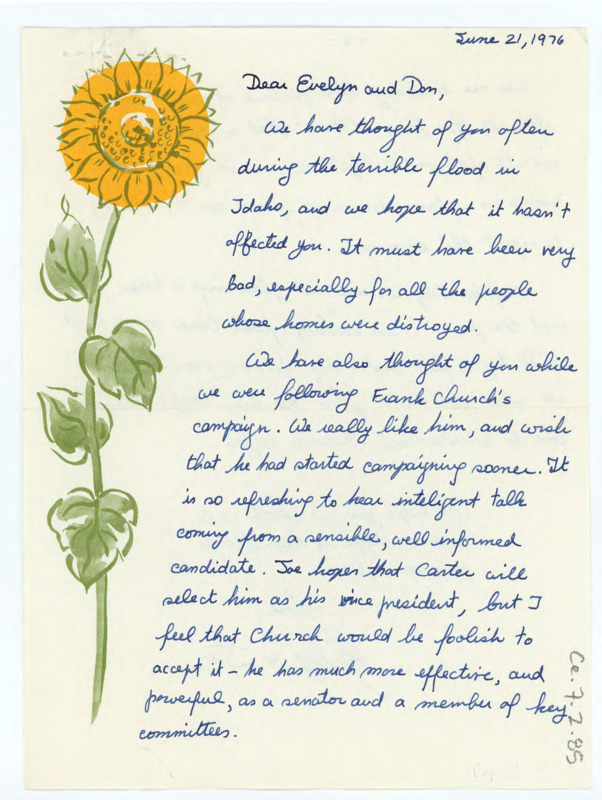 June 21, 1976
Dear Evelyn and Don,
We have thought of you often
during the terrible flood in
Idaho, and we hope that it hasn't
affected you. It must have been very
bad, especially for all the people
whose homes were distroyed.
We have also thought of you while
we were following Frank Church's
campaign. We really like him, and wish
that he had started campaigning sooner. It
is so refreshing to hear inteligent talk
coming from a sensible, well informed
candidate. Joe hopes that Carter will
select him as his vice president, but I
feel that Church would be foolish to
accept it – he has much more effective, and
powerful, as a senator and a member of key
committees.
Ce. 7.2.85